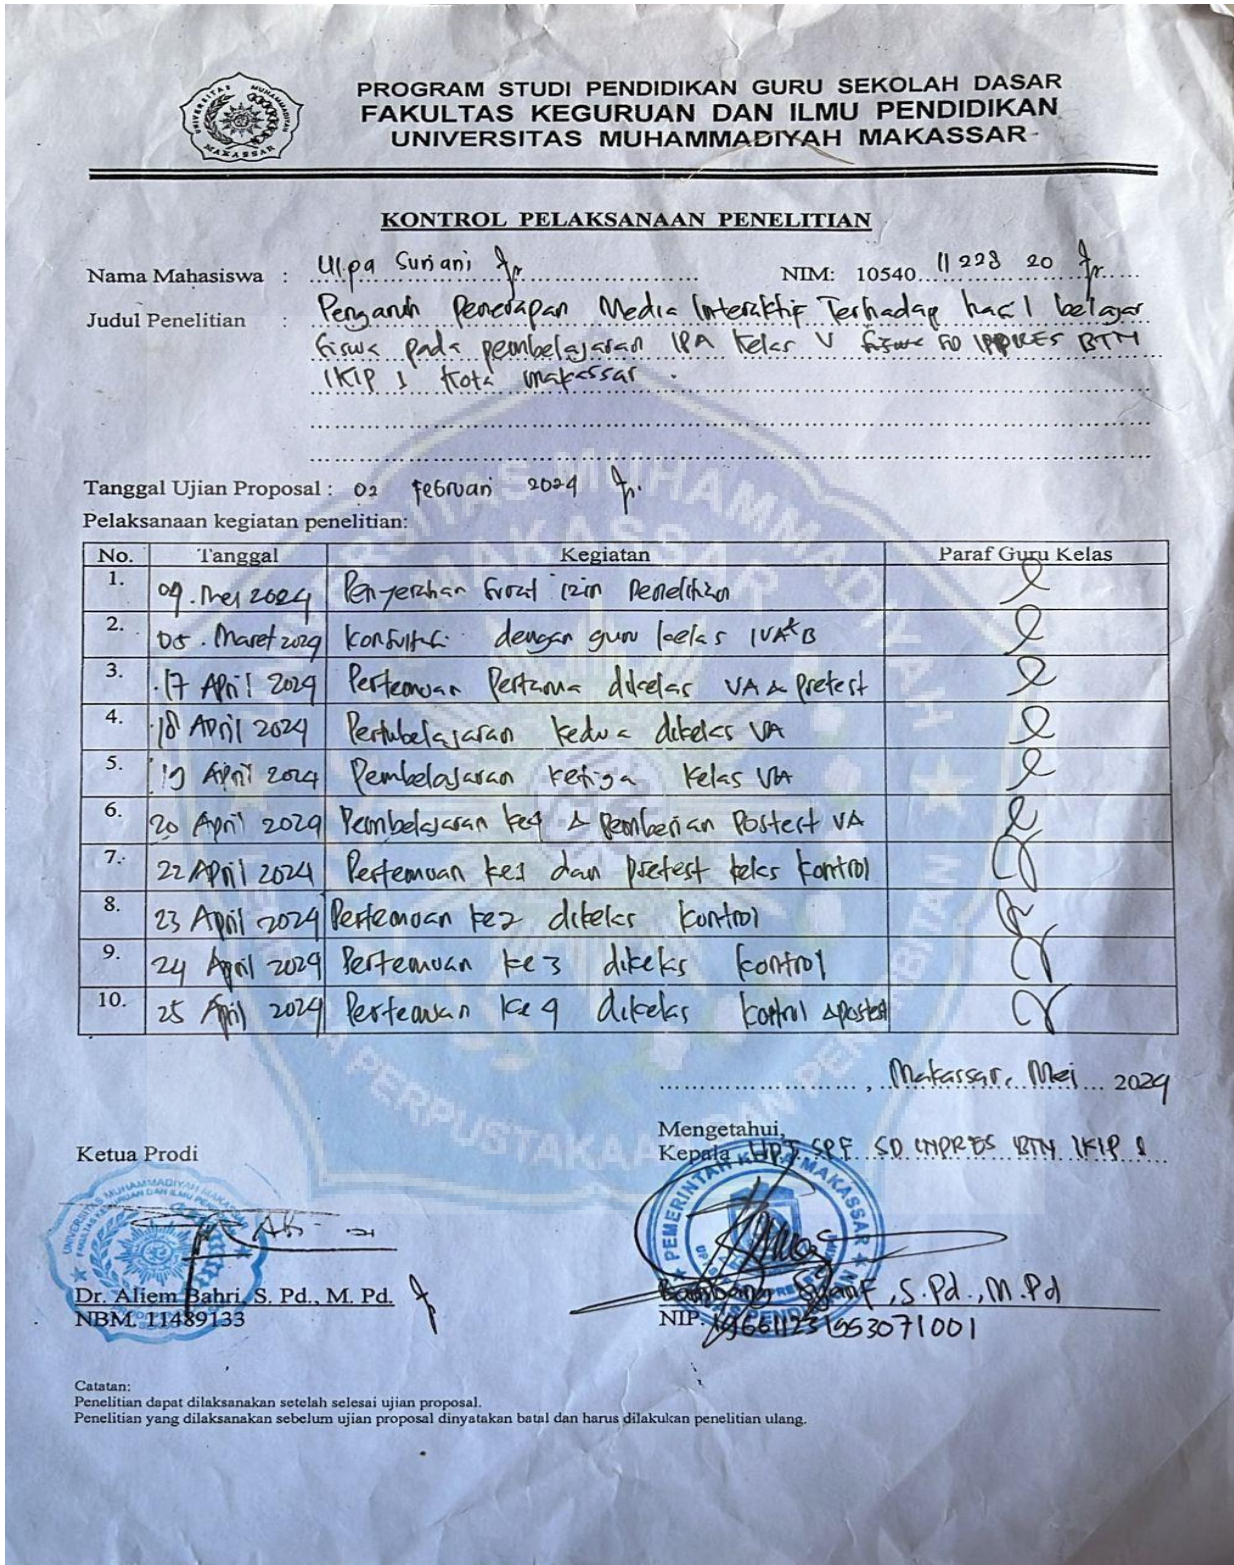 PROGRAM STUDI PENDIDIKAN GURU SEKOLAH DASAR
FAKULTAS KEGURUAN DAN ILMU PENDIDIKAN
UNIVERSITAS MUHAMMADIYAH MAKASSAR
KONTROL PELAKSANAAN PENELITIAN
Nama Mahasiswa : Ulpa Suriani NIM: 10540 11 228 20
Judul Penelitian : Pengaruh Penerapan Media Interaktif Terhadap hasil belajar
siswa pada pembelajaran IPA kelas V siswa SD INPRES BTN
IKIP 1 Kota Makassar.
Tanggal Ujian Proposal : 02 Februari 2024
Pelaksanaan kegiatan penelitian:
No. Tanggal Kegiatan Paraf Guru Kelas
1. Mei 2024 Penyerahan surat izin Penelitian
2. Maret 2024 Konsultasi dengan guru kelas
3. 17 April 2024 Pertemuan Pertama dikelas VA & pretest
4. 18 April 2024 kedua dikelas VA
5. 19 April 2024 Pembelajaran ketiga kelas VA
6. 20 April 2024 Pembelajaran ke4 & pemberian Postest VA
7. 22 April 2024 Pertemuan ke1 dan pretest kelas kontrol
8. 23 April 2024 Pertemuan ke2 dikelas kontrol
9. 24 April 2024 Pertemuan ke3 dikelas kontrol
10. 25 April 2024 Pertemuan ke 4 dikelas kontrol & postest
Makassar, Mei 2024
Mengetahui,
Ketua Prodi
Kepala UPT SPF SD INPRES BTN IKIP 1
Dr. Aliem Bahri, S. Pd., M. Pd.
S.Pd., M.Pd
NBM. 11489133
NIP.
Catatan:
Penelitian dapat dilaksanakan setelah selesai ujian proposal.
Penelitian yang dilaksanakan sebelum ujian proposal dinyatakan batal dan harus dilakukan penelitian ulang.